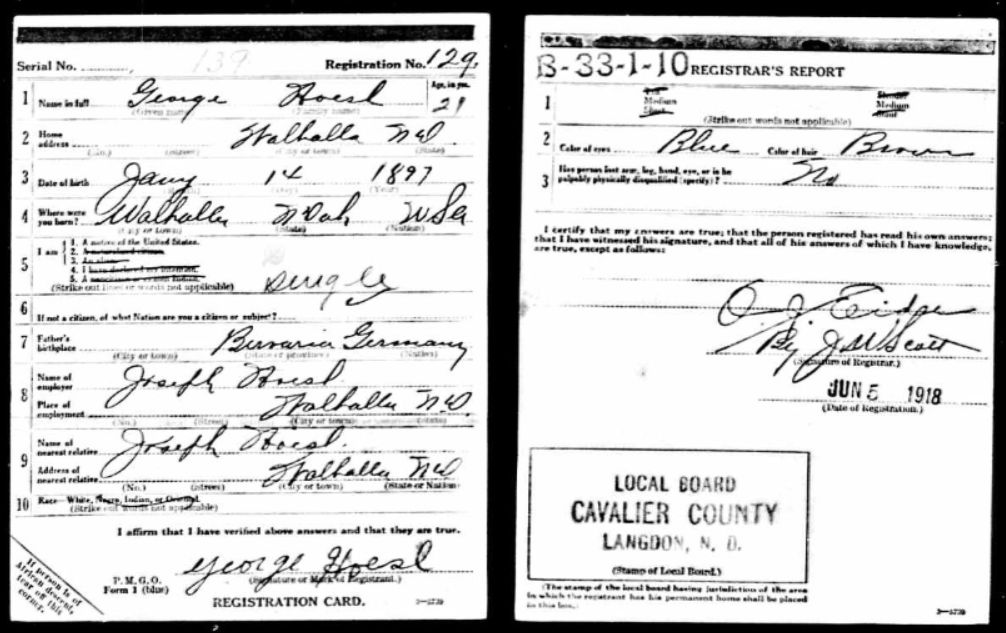 Serial No. 139 Registration No. 129.
1 Name in full George Hoesl Age, in yrs. 21
(Given name) (Family name)
2 Home address Walhalla N D.
(No.) (Street) (City or town) (State)
3 Date of birth Jany 14 1897
(Month) (Day) (Year)
4 Where were you born? Walhalla N Dak USA
(City or town) (State) (Nation)
5 I am
1. A native of the United States.
2. A naturalized citizen.
3. An alien.
4. I have declared my intention.
5. A noncitizen or citizen Indian.
(Strike out lines or words not applicable)
Single
6 If not a citizen, of what Nation are you a citizen or subject?
7 Father's birthplace Bervaria Germany
(City or town) (State or province) (Nation)
8 Name of employer Joseph Hoesl
Place of employment Walhalla N D.
(No.) (Street) (City or town) (State)
9 Name of nearest relative Joseph Hoesl.
Address of nearest relative Walhalla N D
(No.) (Street) (City or town) (State or Nation)
10 Race—White, Negro, Indian, or Oriental.
(Strike out words not applicable)
I affirm that I have verified above answers and that they are true.
George Hoesl
(Signature or Mark of Registrant.)
P. M. G. O.
Form 1 (blue)
REGISTRATION CARD.
If person is of
African descent,
tear off this
corner.
B-33-1-10 REGISTRAR'S REPORT
1 Tall
Medium
Short
Slender
Medium
Stout
(Strike out words not applicable)
2 Color of eyes Blue Color of hair Brown
3 Has person lost arm, leg, hand, eye, or is he
palpably physically disqualified (specify)? No
I certify that my answers are true; that the person registered has read his own answers;
that I have witnessed his signature, and that all of his answers of which I have knowledge,
are true, except as follows:
By J W Scott
(Signature of Registrar.)
JUN 5 1918
(Date of Registration.)
LOCAL BOARD
CAVALIER COUNTY
LANGDON, N. D.
(Stamp of Local Board.)
(The stamp of the local board having jurisdiction of the area
in which the registrant has his permanent home shall be placed
in this box.)